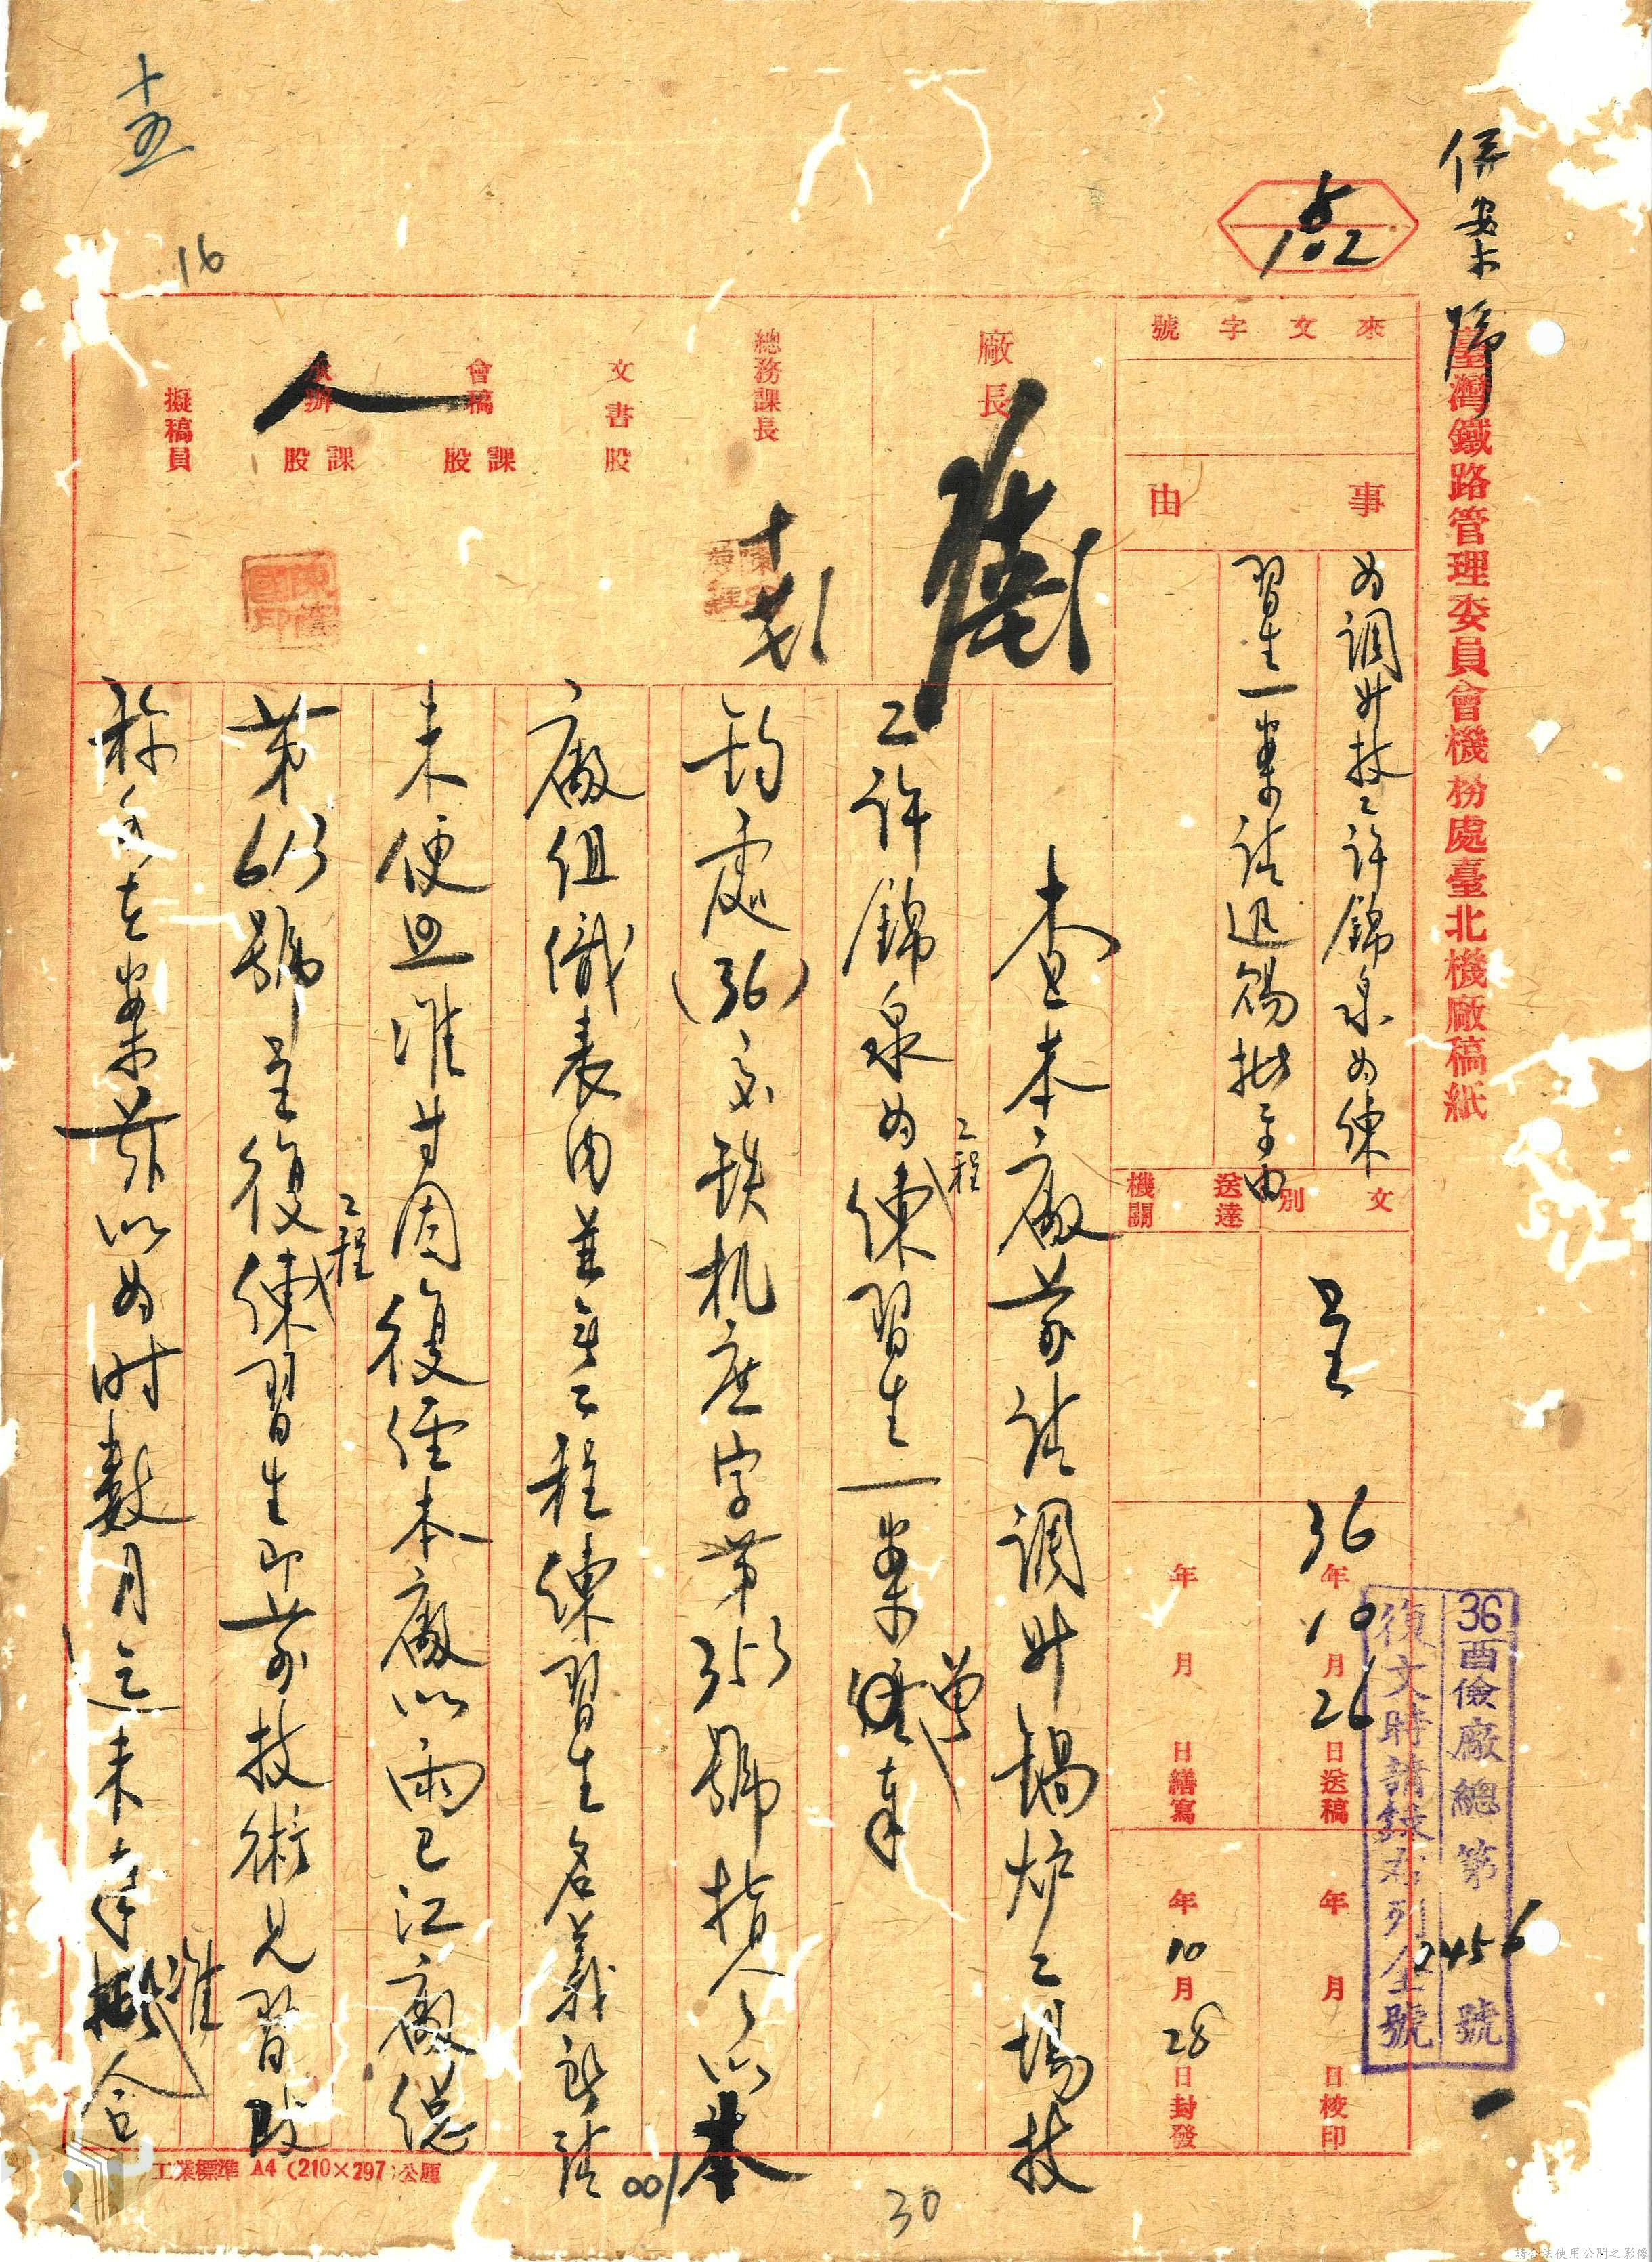 併案歸
臺灣鐵路管理委員會機務處臺北機廠稿紙
來文字號
事由
為調升技工許錦泉為練
習生一案請迅賜批示由
文別
呈
送達機關
36年10月26日送稿
年月日繕寫
年月日校印
年10月28日封發
36酉儉廠總第2456號
復文時請錄右列全號
廠長
總務課長
文書股
會稿課股
承辦課股
擬稿員
十五
16
查本廠前請調升鍋炉工場技
工許錦泉為工程練習生一案曾奉
鈞處(36)交鉄机庶字第353號指令以本
廠組織表内並無工程練習生名義所請
未便照准等因復經本廠以雨巳江廠總
第613號呈復工程練習生即前技術見習改
称各在案茲以為时數月迄未奉准合
30
工業標準 A4 (210×297)公厘
請合法使用公開之影像